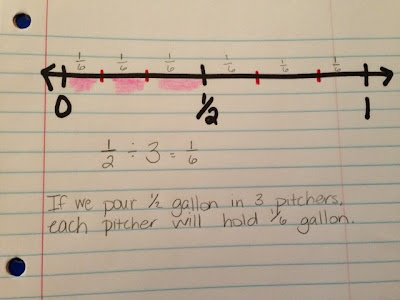 1/6 1/6 1/6 1/6 1/6 1/6
0 1/2 1
1/2 ÷ 3 = 1/6
If we pour 1/2 gallon in 3 pitchers,
each pitcher will hold 1/6 gallon.